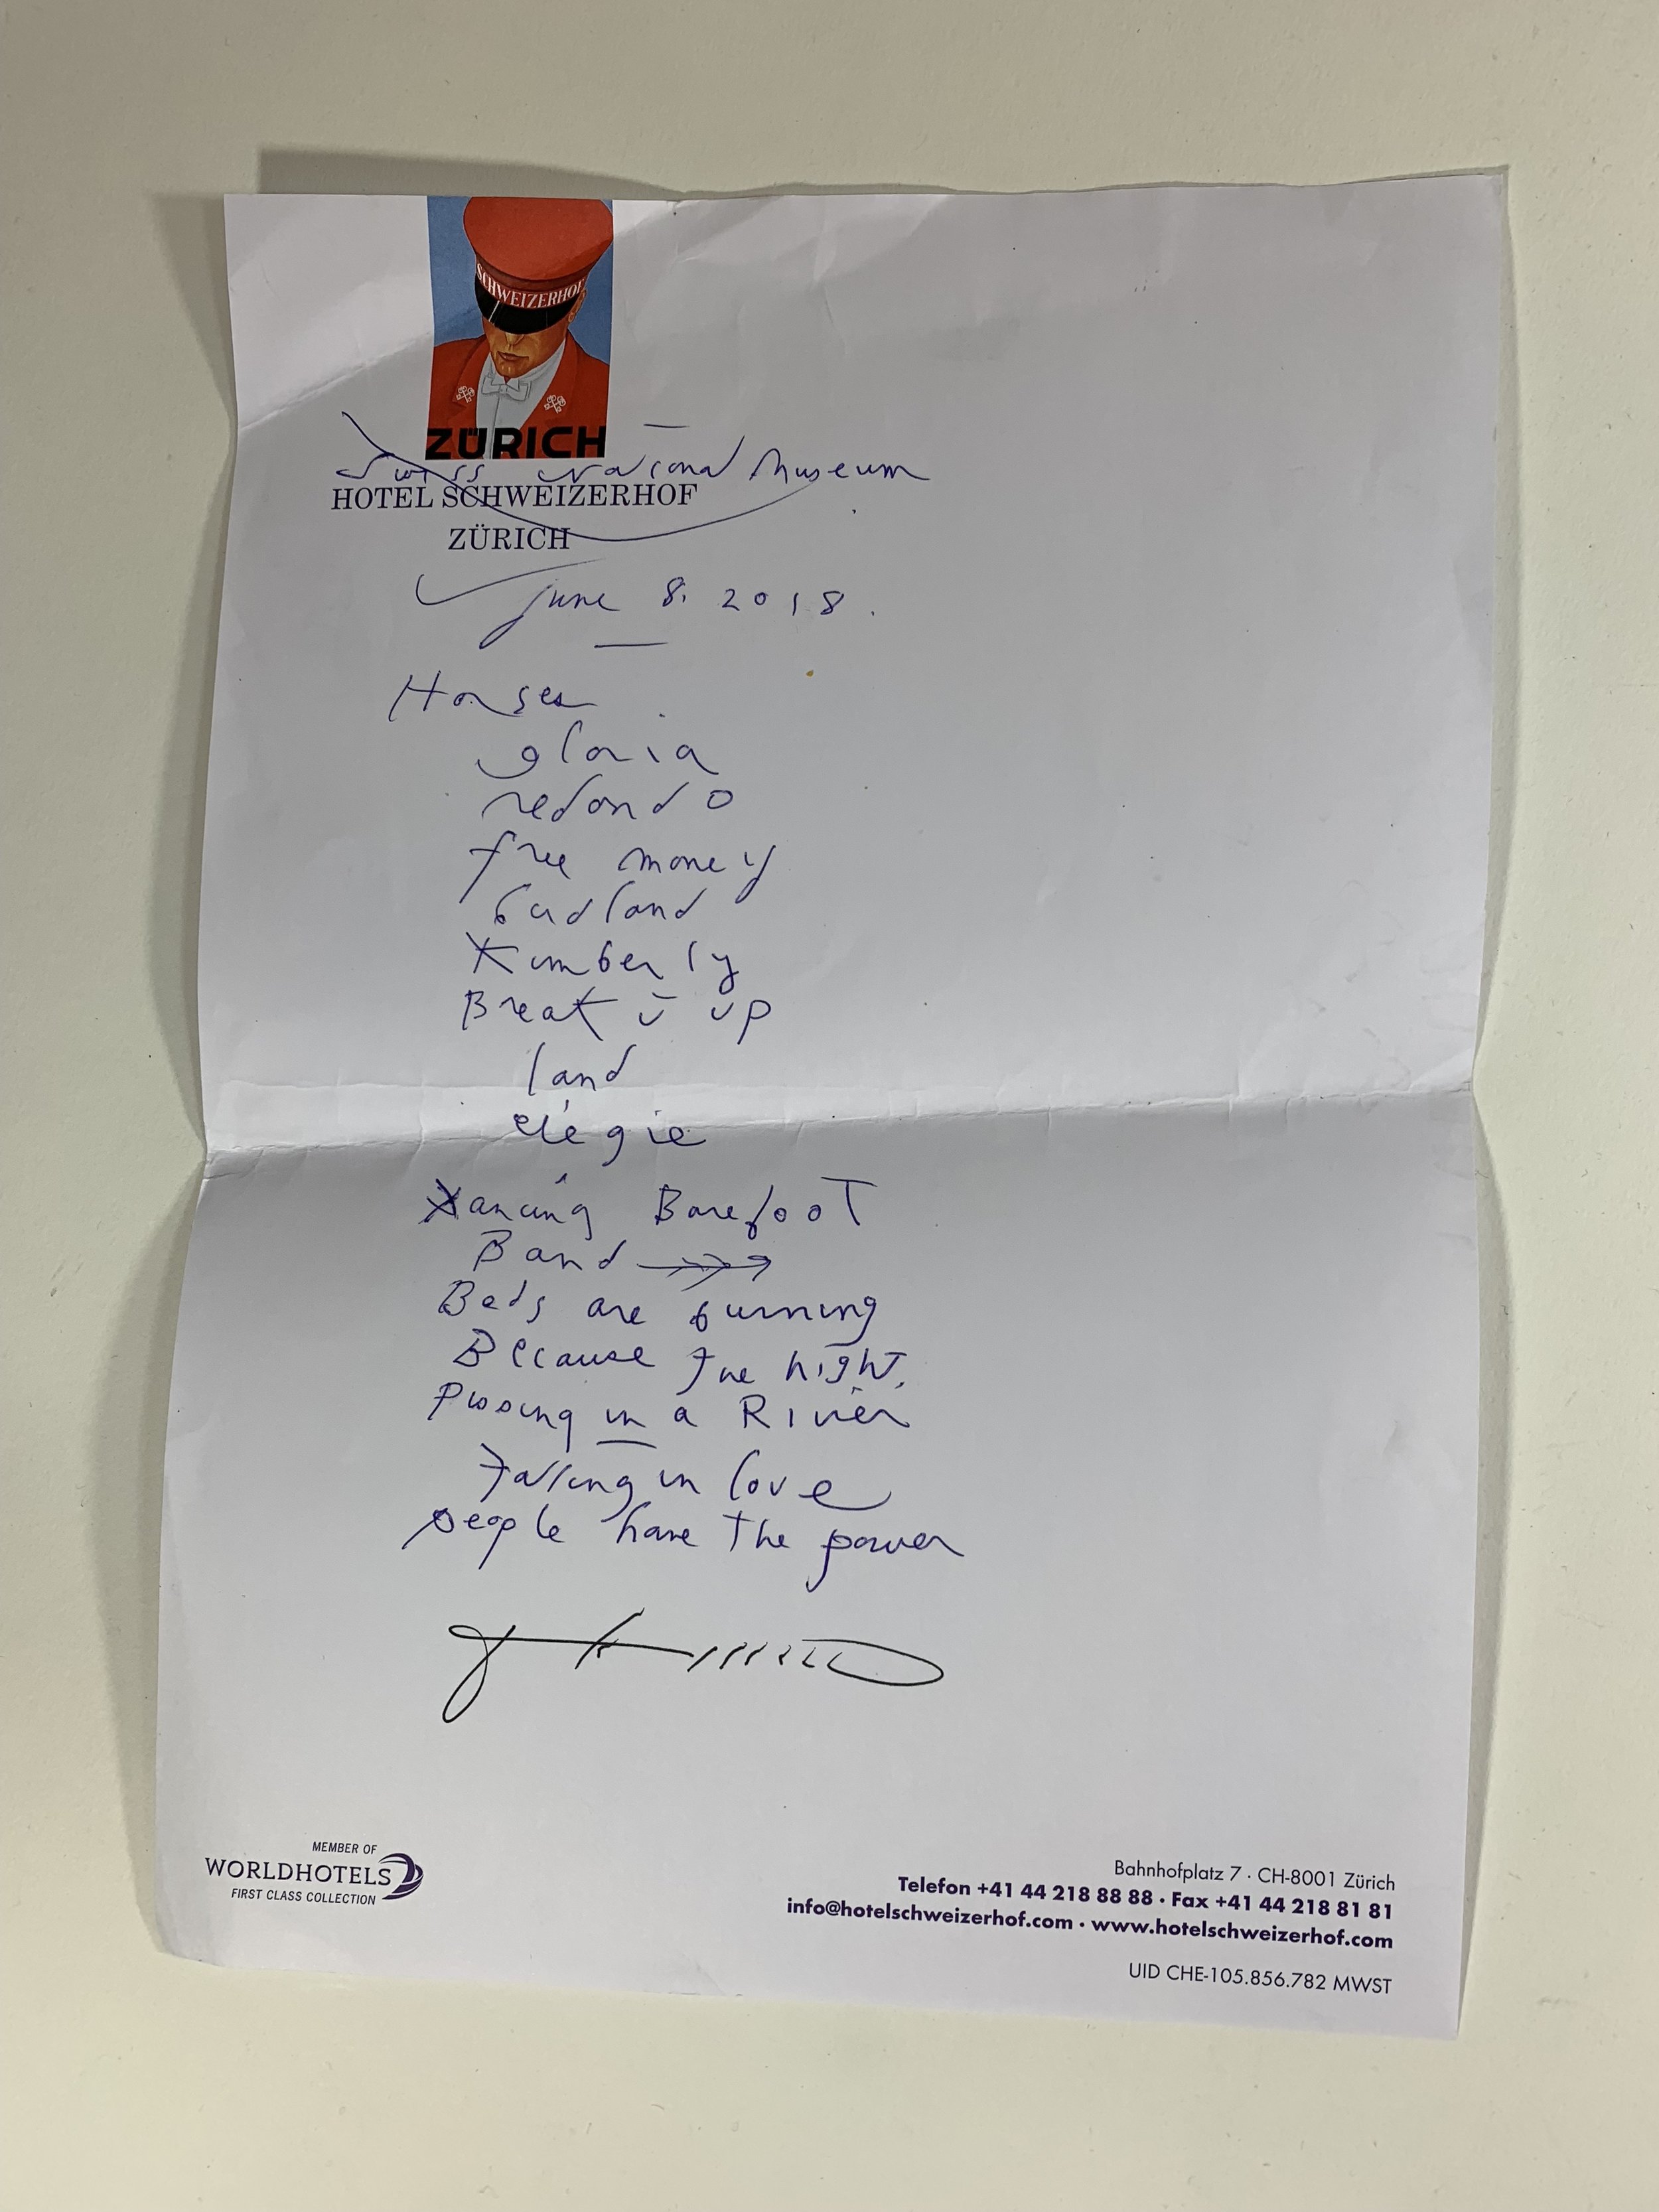 SCHWEIZERHOF
ZÜRICH
Swiss National Museum
HOTEL SCHWEIZERHOF
ZÜRICH
june 8. 2018.
Horses
gloria
redondo
free money
badland
Kimberly
Break it up
land
elégie
Dancing Barefoot
Band
Beds are burning
Because the night.
Pissing in a River
Falling in love
people have the power
MEMBER OF
WORLDHOTELS
FIRST CLASS COLLECTION
Bahnhofplatz 7 · CH-8001 Zürich
Telefon +41 44 218 88 88 · Fax +41 44 218 81 81
info@hotelschweizerhof.com · www.hotelschweizerhof.com
UID CHE-105.856.782 MWST